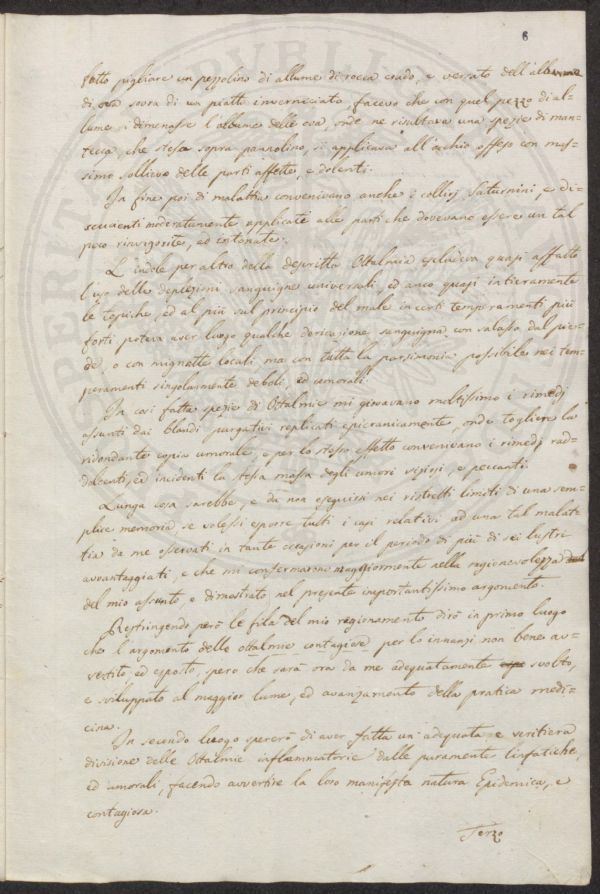 6
fatto pigliare un pezzolino di allume di rocca crudo, e versato dell'albume
di ova sovra di un piatto inverniciato facevo che con quel pezzo di al-
lume si dimenasse l'albume delle ova, onde ne risultava una spezie di man-
tecca, che stesa sopra pannolino, si applicava all'occhio offeso con mas-
simo sollievo delle parti affette, e dolenti.
In fine poi di malattia convenivano anche i collirj Saturnini, e di-
scuzienti moderatamente applicati alle parti che dovevano essere un tal
poco rinvigorite, ed estonate.
L'indole per altro della descritta Ottalmia escludeva quasi affatto
l'uso delle deplezioni sanguigne universali, ed anco quasi intieramente
le topiche, ed al più sul principio del male in certi temperamenti più
forti poteva aver luogo qualche derivazione sanguigna con salasso dal pie-
de, o con mignatte locali ma con tutta la parsimonia possibile nei tem-
peramenti singolarmente deboli, ed umorali.
In così fatta spezie di Ottalmie mi giovavano moltissimo i rimedj
assunti dai blandi purgativi replicati epicraticamente, onde togliere la
ridondante copia umorale, e per lo stesso effetto convenivano i rimedj rad-
dolcenti, ed incidenti la stessa massa degli umori viziosi, e peccanti.
Lunga cosa sarebbe, e da non eseguirsi nei ristretti limiti di una sem-
plice memoria se volessi esporre tutti i casi relativi ad una tal malat-
tia da me osservati in tante occasioni per il periodo di più di sei lustri
avvantaggiati, e che mi confermarono maggiormente nella ragionevolezza
del mio assunto, e dimostrato nel presente importantissimo argomento.
Restringendo però le fila del mio ragionamento dirò in primo luogo
che l'argomento delle ottalmie contagiose per lo innanzi non bene av-
vertito, ed esposto, spero che sarà ora da me adeguatamente svolto,
e sviluppato al maggior lume, ed avanzamento della pratica medi-
cina.
In secondo luogo spererò di aver fatta un'adequata e veritiera
divisione delle Ottalmie inflammatorie dalle puramente linfatiche,
ed umorali, facendo avvertire la loro manifesta natura Epidemica, e
contagiosa.
Terzo